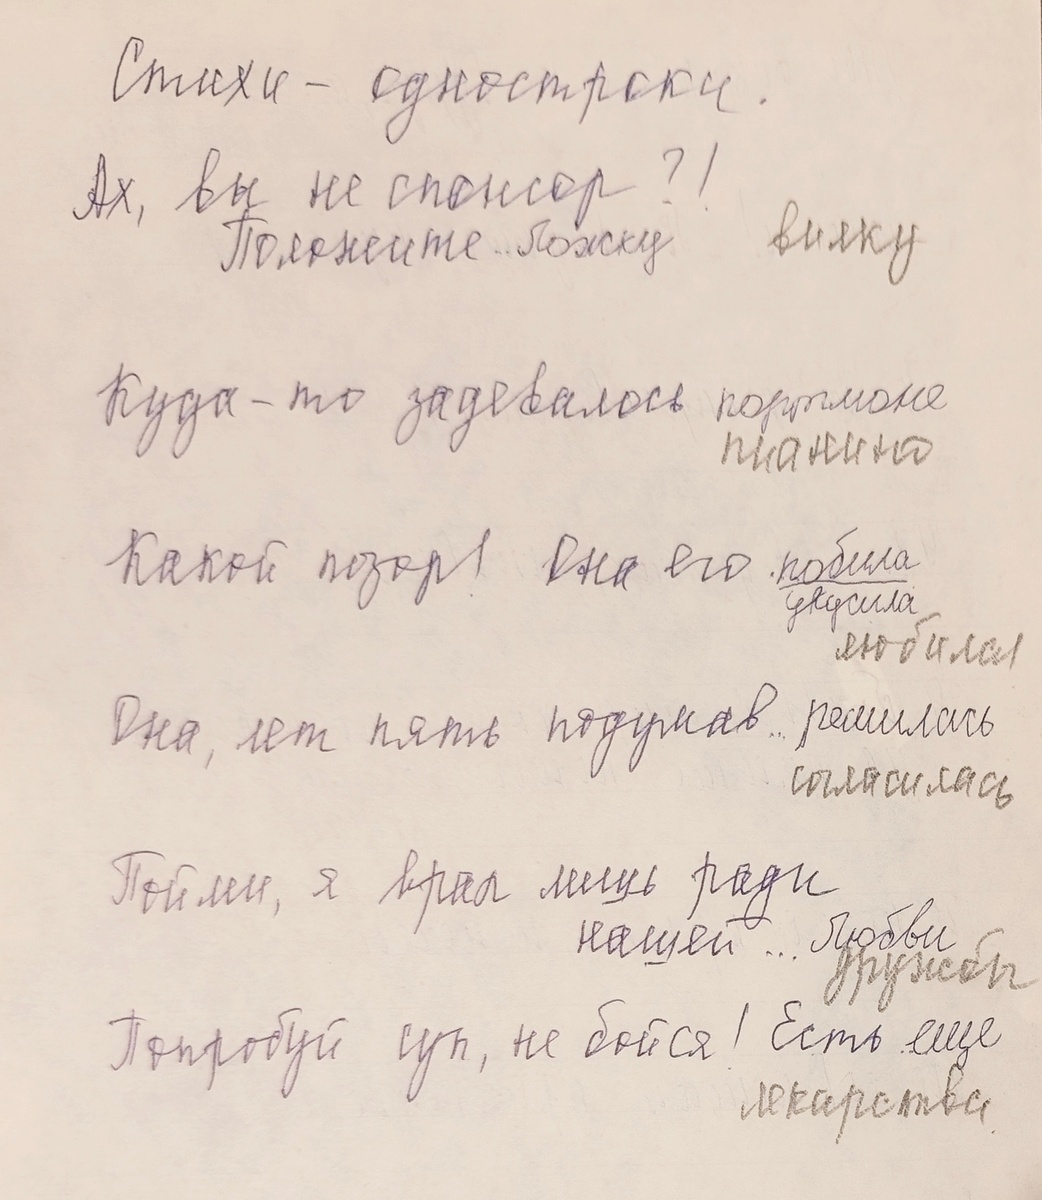 Стихи - одностроки.
Ах, вы не спонсор?!
Положите .. ложку вилку
Куда-то задевалось портмоне
пианино
Какой позор! Она его . побила
укусила
любила
Она, лет пять подумав .. решилась
согласилась
Пойми, я врал лишь ради
нашей ... Любви
дружбы
Попробуй суп, не бойся! Есть еще
лекарства.